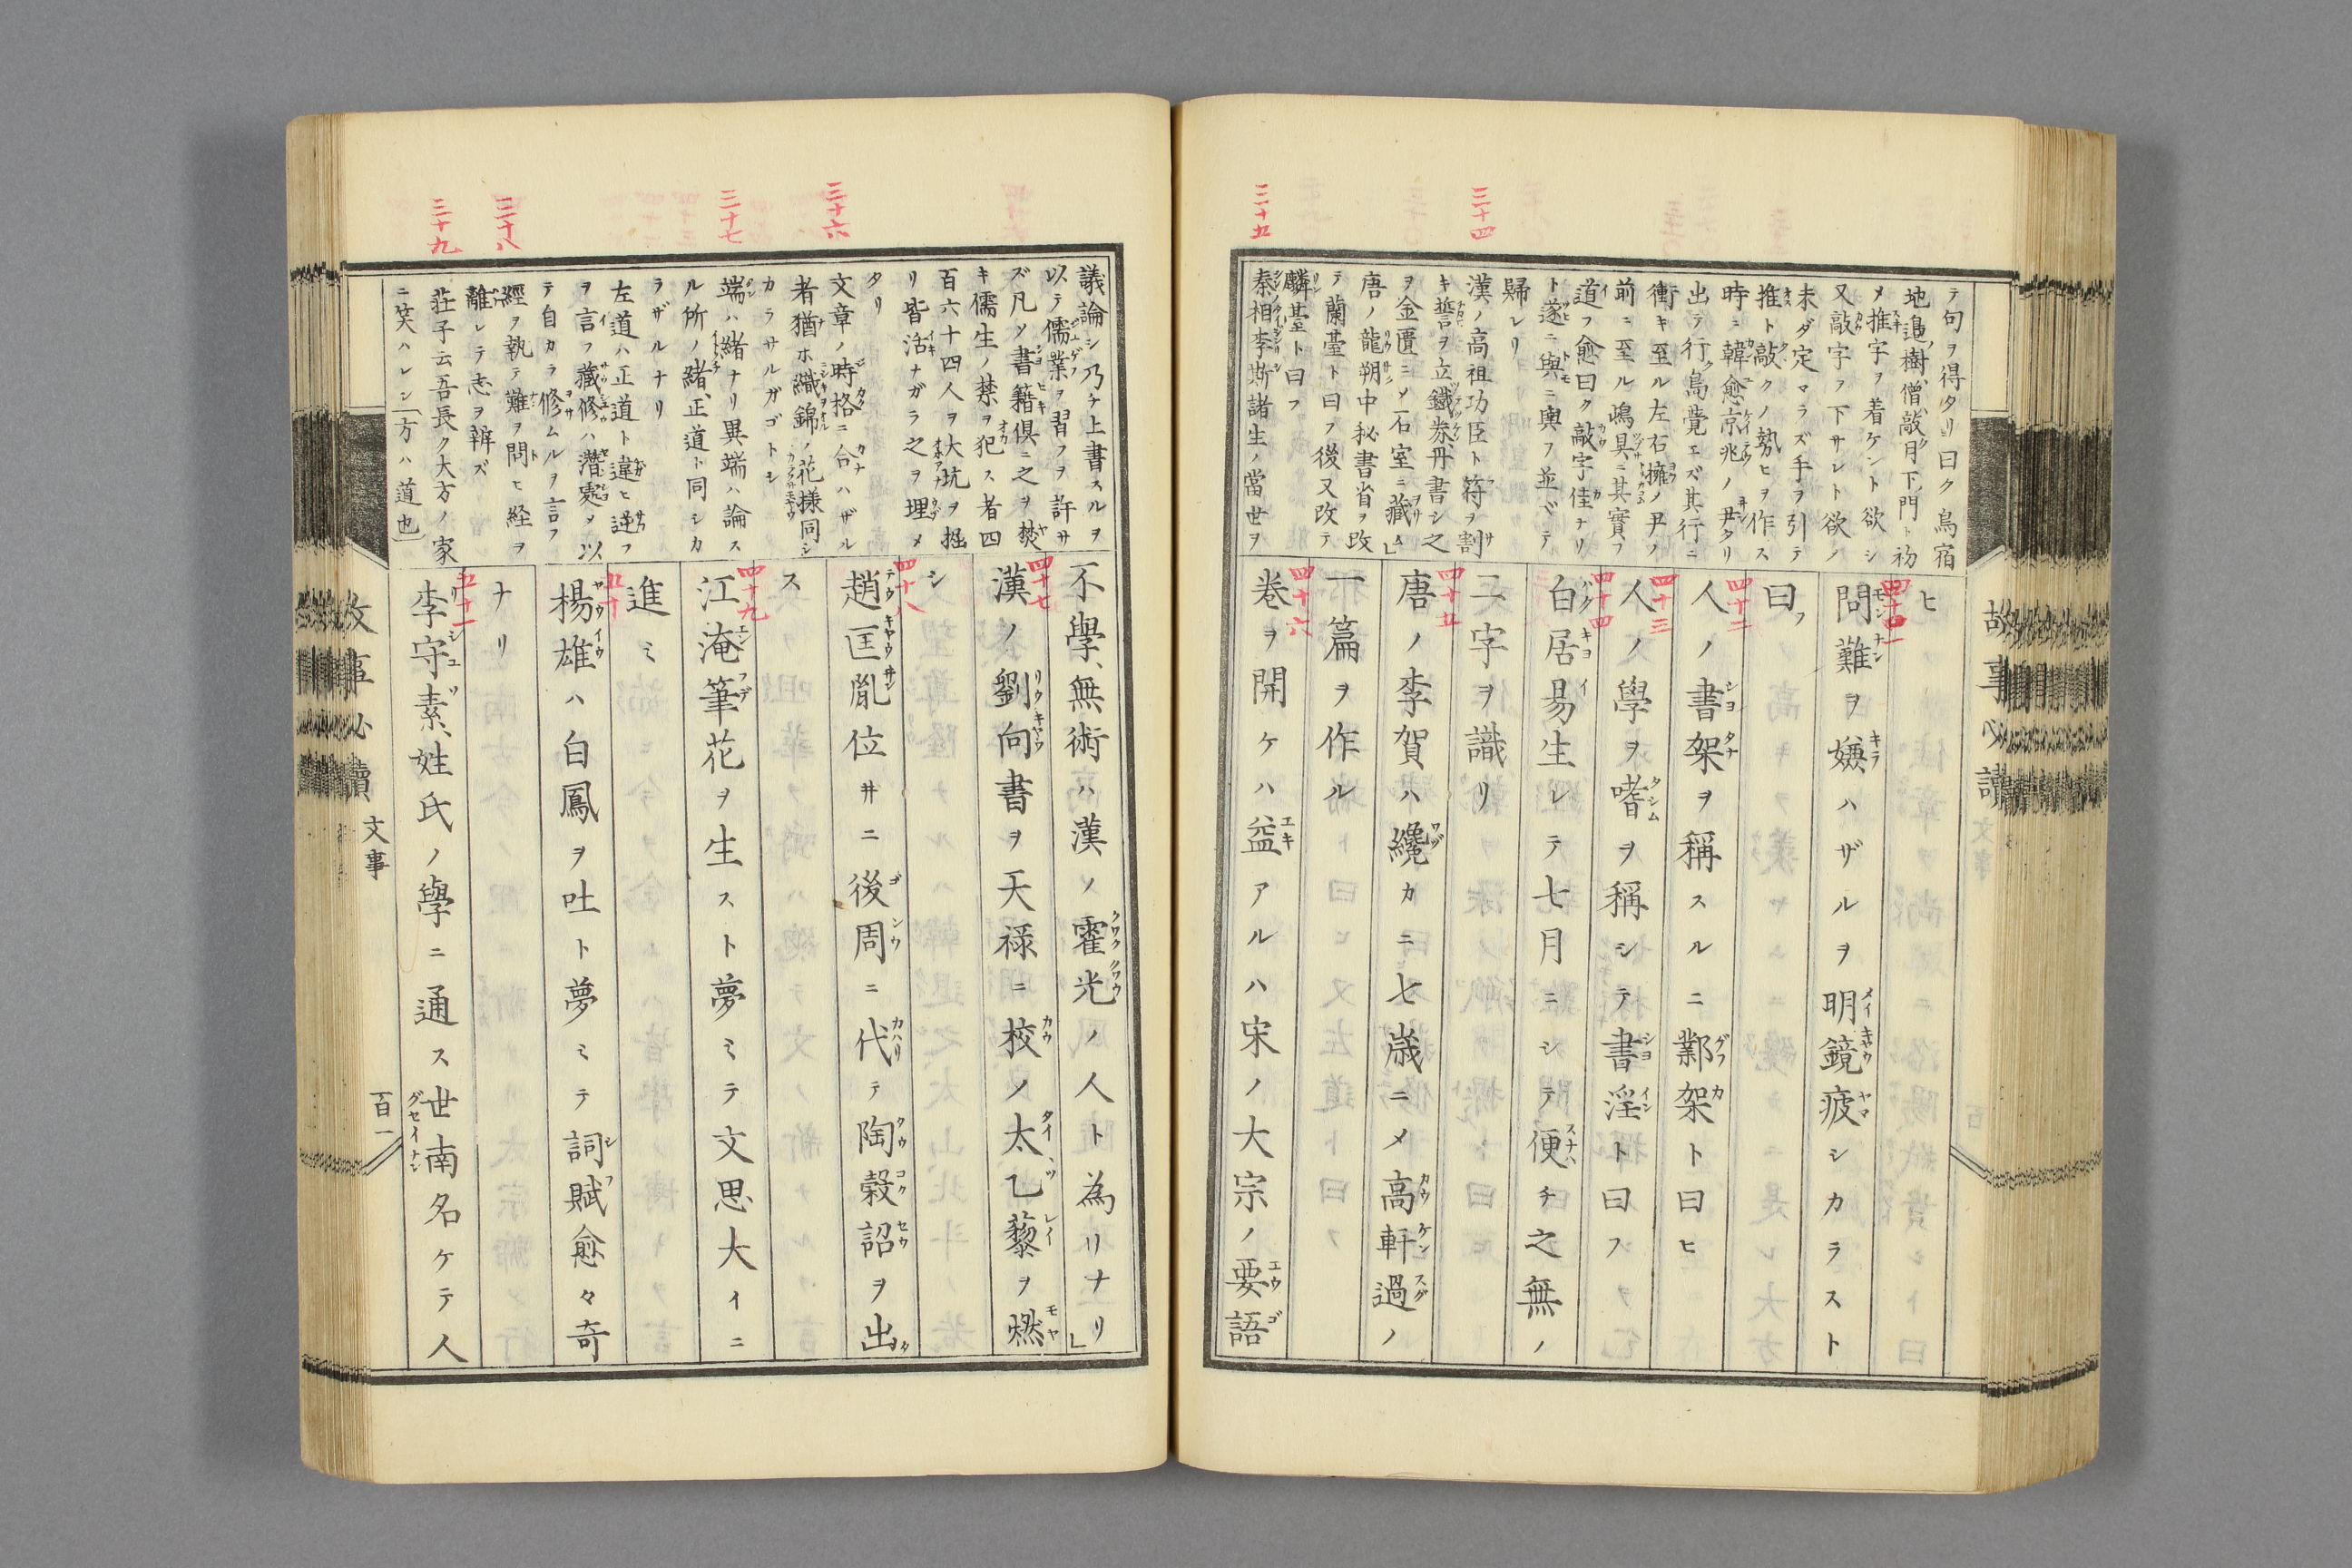 三十四
三十五
テ句ヲ得タリ曰ク鳥宿
地邉樹、僧敲月下門ト初
メ推字ヲ着ケント欲シ
又敲字ヲ下サレト欲ノ
未ダ定マラズ手ヲ引テ
推ト敲クノ勢ヒヲ作ス
時ニ韓愈京兆ノ尹タリ
出テ行ク島覺エズ其行ニ
衝キ至ル左右擁ノ尹ノ
前ニ至ル嶋具ニ其實ヲ
道フ愈曰ク敲字佳ナリ
ト遂ニ與ニ輿ヲ並ベテ
歸レリ
漢ノ高祖功臣ト符ヲ割
キ誓ヲ立鐵券丹書シ之
ヲ金匱ニメ石室ニ藏ム」
唐ノ龍朔中秘書省ヲ改
テ蘭臺ト曰フ後又改テ
麟臺ト曰フ
秦相李斯諸生ノ當世ヲ
ヒ
四十一
問難ヲ嫌ハザルヲ明鏡疲シカラスト
曰フ
四十二
人ノ書架ヲ稱スルニ鄴架ト曰ヒ
四十三
人ノ學ヲ嗜ヲ稱シテ書淫ト曰フ
四十四
白居易生レテ七月ニシテ便チ之無ノ
二字ヲ識リ
四十五
唐ノ李賀ハ纔カニ七歳ニメ高軒過ノ
一篇ヲ作ル
四十六
巻ヲ開ケハ益アルハ宋ノ大宗ノ要語
故事必讀
三十六
三十七
三十八
三十九
議論シ乃チ上書スルヲ
以テ儒業ヲ習フヲ許サ
ズ凡ソ書籍倶ニ之ヲ焚
キ儒生ノ禁ヲ犯ス者四
百六十四人ヲ大坑ヲ掘
リ皆活ナガラ之ヲ埋メ
タリ
文章ノ時格ニ合ハザル
者猶ホ織錦ノ花樣同シ
カラサルガゴトシ
端ハ緒ナリ異端ハ論ス
ル所ノ緒、正道ト同シカ
ラザルナリ
左道ハ正道ト違ヒ逆フ
ヲ言フ藏修ハ潛處メ以
テ自カラ修ムルヲ言フ
經ヲ執テ難ヲ問ヒ経ヲ
離レテ志ヲ辨ズ
莊子云吾長ク大方ノ家
ニ笑ハレン〔方ハ道也〕
不學、無術ハ漢ノ霍光ノ人ト為リナリ」
四十七
漢ノ劉向書ヲ天禄ニ校ノ太乙藜ヲ燃
シ
四十八
趙匡胤位井ニ後周ニ代テ陶榖詔ヲ出
ス
四十九
江淹筆花ヲ生スト夢ミテ文思大イニ
進ミ
五十
楊雄ハ白鳳ヲ吐ト夢ミテ詞賦愈々奇
ナリ
五十一
李守素、姓氏ノ學ニ通ス世南名ケテ人
故事必讀
文事
百一